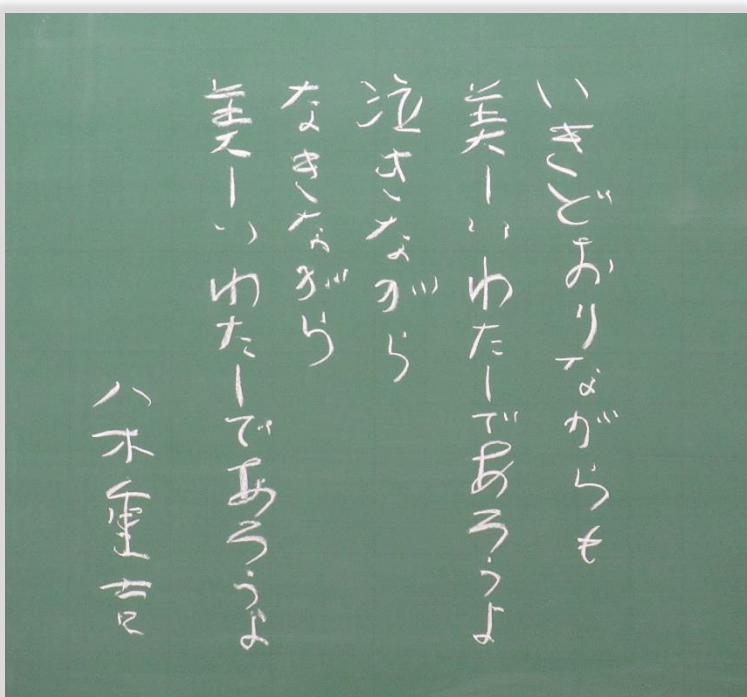 いきどおりながらも
美しいわたしであろうよ
泣きながら
なきながら
美しいわたしであろうよ
八木重吉